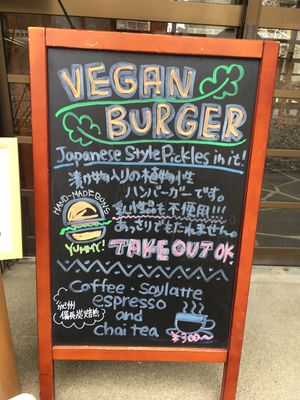 VEGAN
BURGER
Japanese Style Pickles in it!
漬け物入りの植物性
ハンバーガーです。
乳・卵も不使用!!!
あっさりでもたれません。
HAND-MADE BUNS
YUMMY!
TAKE OUT OK
Coffee・Soylatte
espresso
and
chai tea
紀州
備長炭焙煎
¥300〜